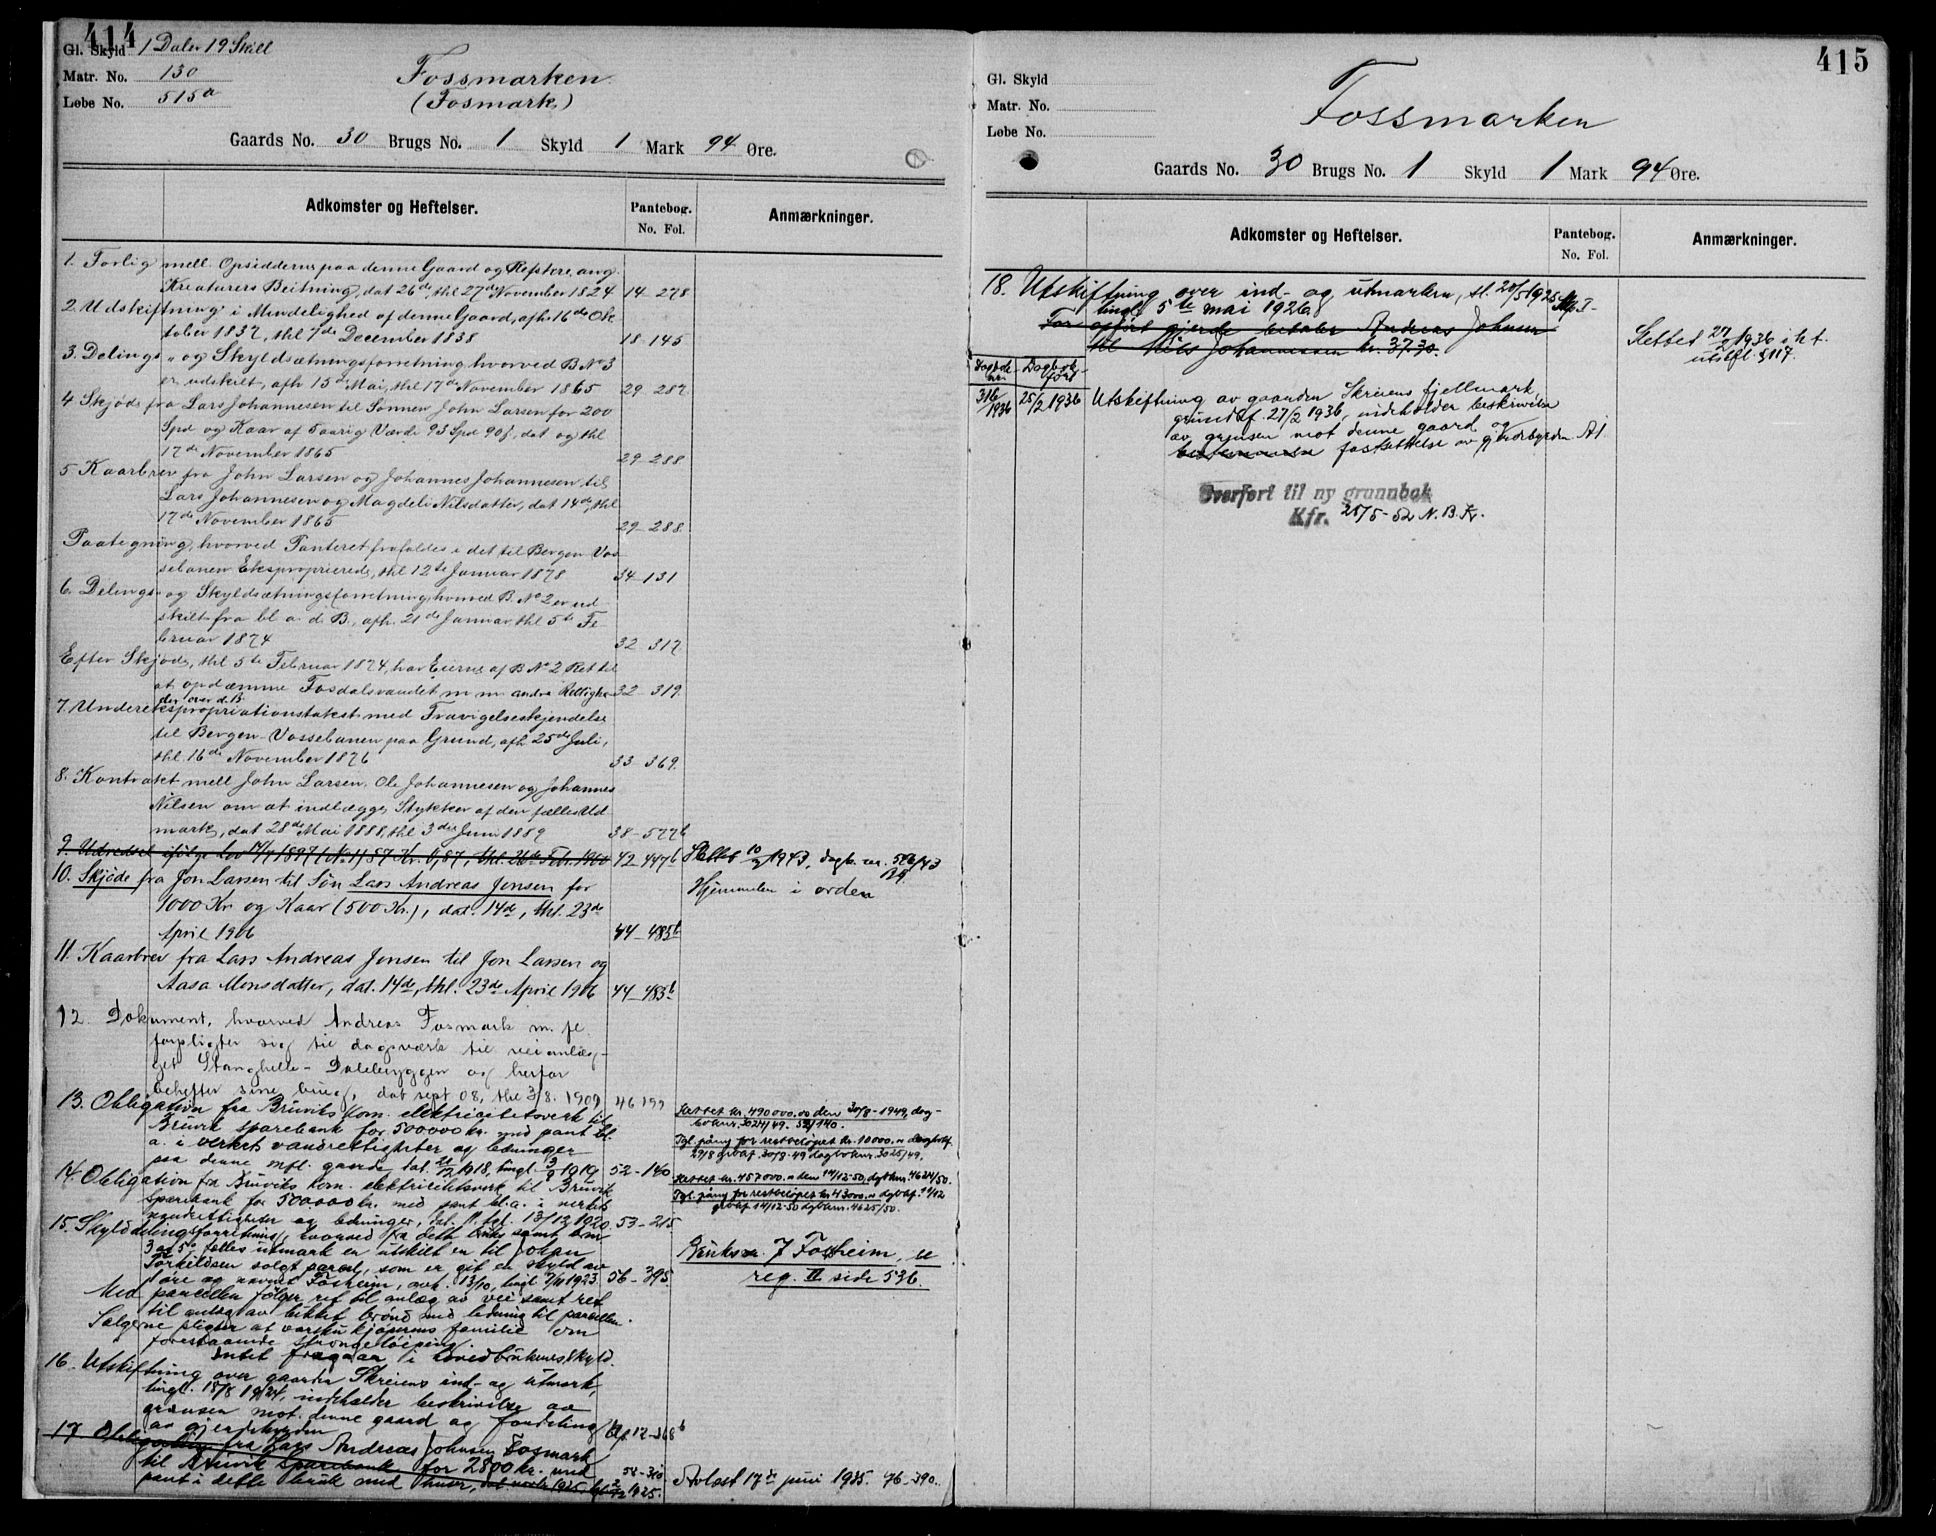 414
Gl. Skyld 1 Daler 19 Skill
Matr. No. 130
Løbe No. 515a
Fossmarken
(Fosmark)
Gaards No. 30 Brugs No. 1 Skyld 1 Mark 94 Øre.
Adkomster og Heftelser.
Pantebog.
No. Fol.
Anmærkninger.
1. Forlig mell. Opsidderne paa denne Gaard og Refskere ang.
Kreaturers Beitning, dat 26de, thl 27de November 1824 14-278
2. Udskiftning i Mindelighed af denne Gaard, afh. 16de Ok-
tober 1837, thl 7de December 1838 18-145
3. Delings- og Skyldsætningsforretning hvorved B No 3
er udskilt, afh 15de Mai, thl 17de November 1865 29-287
4. Skjøde fra Lars Johannesen til Sønnen John Larsen for 200
Spd og Kaar af 5aarig Værdi 93 Spd 90s, dat og thl
17de November 1865 29-288
5. Kaarbrev fra John Larsen og Johannes Johannesen til
Lars Johannesen og Magdeli Nilsdatter, dat 14de, thl
17de November 1865 29-288
Paategning, hvorved Panteret frafaldes i det til Bergen-Vos-
sebanen Eksproprierede, thl 12te Januar 1878 34-131
6. Delings- og Skyldsætningsforretning hvorved B. No 2 er ud-
skilt fra bl. a. d. B., afh. 21de Januar thl 5te Fe-
bruar 1874 32-317
Efter Skjøde, thl 5te Februar 1874, har Eierne af B No 2 Ret til
at opdæmme Fosdalsvandet m m andre Rettighe- 32-319.
der over d. B.
7. Underekspropriationstakst med Fravigelseskjendelse
til Bergen-Vossebanen paa Grund, afh 25de Juli,
thl. 16de November 1876 33-369.
8. Kontrakt mell John Larsen, Ole Johannesen og Johannes
Nilsen om at indlægge Stykker af den fælles Ud-
mark, dat 28de Mai 1888, thl 3die Juni 1889 38-577b
9. Udredsel ifølge Lov 17/7 1897 No 1, 1187 Kr. 0,87, thl. 26de Febr. 1900 42-447b Slettet 10/2 1943, dagb. nr. 526/43
10. Skjøde fra Jon Larsen til Søn Lars Andreas Jensen for Hjemmelen i orden
1000 Kr og Kaar (500 Kr.), dat. 14de, thl. 23de
April 1906 44-483b
11. Kaarbrev fra Lars Andreas Jonsen til Jon Larsen og
Aasa Monsdatter, dat. 14de, thl. 23de April 1906 44-483b
12. Dokument, hvorved Andreas Fosmark m. fl.
forpligter sig til dagsværk til veianlæg-
get Stanghelle-Dalebryggen og herfor
behefter sine brug, dat sept 08, thl 3/8. 1909 46 199
13. Obligation fra Bruviks kom. elektricitetsverk til Slettet kr. 490000.00 den 30/8-1949, dag-
Bruvik sparebank for 500000 kr. med pant bl. boknr. 3024/49. 52/140.
a. i verkets vandrettigheter og ledninger Tgl. påny for restbeløpet kr. 10000.00 dagbokf.
paa denne mfl. gaarde, dat. 1918, tingl. 1919 52-140
14. Obligation fra Bruviks kom. elektricitetsverk til Bruvik Slettet kr. 457000.00 den 14/12-50, dgbknr. 4624/50.
sparebank for 500.000 kr. med pant bl. a. i verkets Tgl. påny for restbeløpet kr. 43000.00 dgbkf. 14/12
vandrettigheter og ledninger, dat. tgl. 13/12 1920 53-215 14/12-50 dgboknr. 4625/50.
15. Skylddelingsforretning, hvorved fra dette bruk samt bnr
3 og 5 fælles utmark er utskilt en til Johan Bruksnr. 7 Fosheim, se
Torkildsen solgt parcel, som er git en skyld av reg. II side 536.
1 øre og navnet Fosheim, avh. 13/10, tingl 9/11 1923. 56-395
Med parcellen følger ret til anlæg av vei samt ret
til anlæg av lukket brønd med ledning til parcellen.
Sælgerne pligter at varsku kjøperens familie om
forestaaende
Intet fragaar i hovedbrukenes skyld.
16. Utskiftning over gaarden Skreiens ind- og utmark,
tingl. 15/8 1924, indeholder beskrivelse av
grænsen mot denne gaard og fordeling
av gjerdebyrden Up. 12-368b
17. Obligation fra Lars Andreas Johnsen Fosmark
til Bruvik Sparebank for 2800 kr. med 58-310
pant i dette bruk med huser, 1925. Avlæst 17de juni 1935. 76-390.
415
Gl. Skyld
Matr. No.
Løbe No.
Fossmarken
Gaards No. 30 Brugs No. 1 Skyld 1 Mark 94 Øre.
Adkomster og Heftelser.
Pantebog.
No. Fol.
Anmærkninger.
18. Utskiftning over ind- og utmarken, sl. 20/5 1925
tingl. 5te mai 1926.
For opført gjerde betaler Andreas Johnsen
til Nils Johannessen kr. 37.30.
Slettet 27/2 1936 i h.t.
utskfl. § 117.
Dagbok- nr. Dagbok- ført
316/1936 25/2 1936 Utskiftning av gaarden Skreiens fjellmark,
grundbf. 27/2 1936, indeholder beskrivelse
av grensen mot denne gaard og
bestemmelse fastsettelse av gjerdebyrden A1
Overført til ny grunnbok
Kfr. 25/5-52 N.B.Fr.